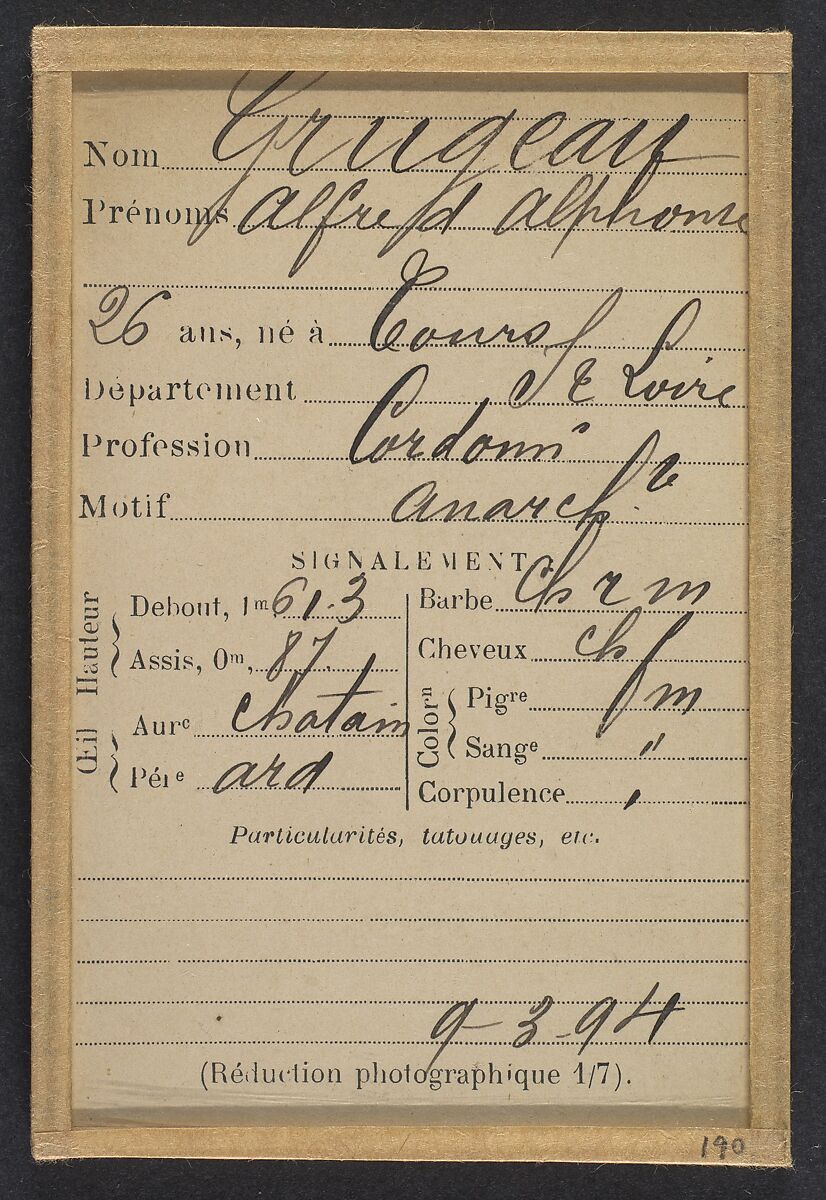 Nom Grugeau
Prénoms Alfred Alphonse
26 ans, né à Tours
Département It Loire
Profession Cordonnr
Motif Anarch.te
SIGNALEMENT.
Hauteur
Debout, 1m 61.3
Assis, 0m, 87.
Œil
Aure chatain
Pére ard
Barbe ch r m
Cheveux ch f
Colorn
Pigre m
Sange "
Corpulence
Particularités, tatouages, etc.
9-3-94
(Réduction photographique 1/7).
190